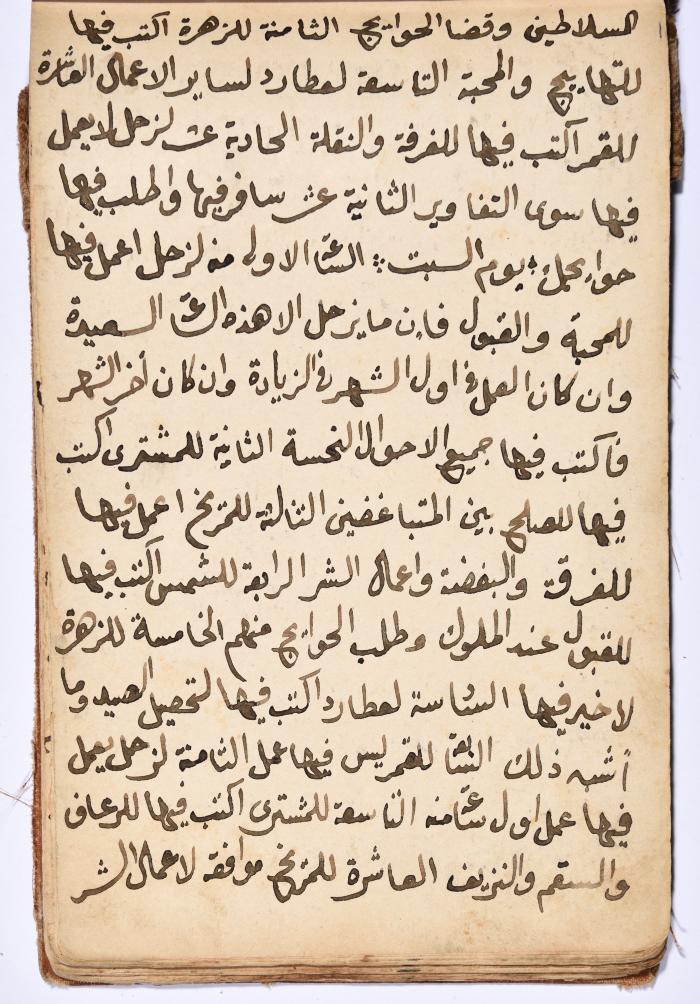 السلاطين وقضا الحوايج الثامنة للزهرة اكتب فيها
للتهاييج والمحبة التاسعة لعطارد لساير الاعمال العاشرة
للقمر اكتب فيها للفرقة والنقلة الحادية عشر لزحل لا يعمل
فيها سوى التغاوير الثانية عشر سافر فيها واطلب فيها
حوايجك يوم السبت الساعة الاولى منه لزحل اعمل فيها
للمحبة والقبول فان ما يزحل الا هذه الساعة السعيدة
وان كان العمل في اول الشهر في الزيادة وان كان أخر الشهر
فاكتب فيها جميع الاحوال النحسة الثانية للمشترى اكتب
فيها للصلح بين المتباغضين الثالثة للمريخ اعمل فيها
للفرقة والبغضة واعمال الشر الرابعة للشمس اكتب فيها
للقبول عند الملوك وطلب الحوايج منهم الخامسة للزهرة
لا خير فيها السادسة لعطارد اكتب فيها لتحصيل الصيد وما
أشبه ذلك السابعة للقمر ليس فيها عمل الثامنة لزحل يعمل
فيها عمل اول ساعة منه التاسعة للمشترى اكتب فيها للرعاف
والسقم والنزيف العاشرة للمريخ موافقة لاعمال الشر